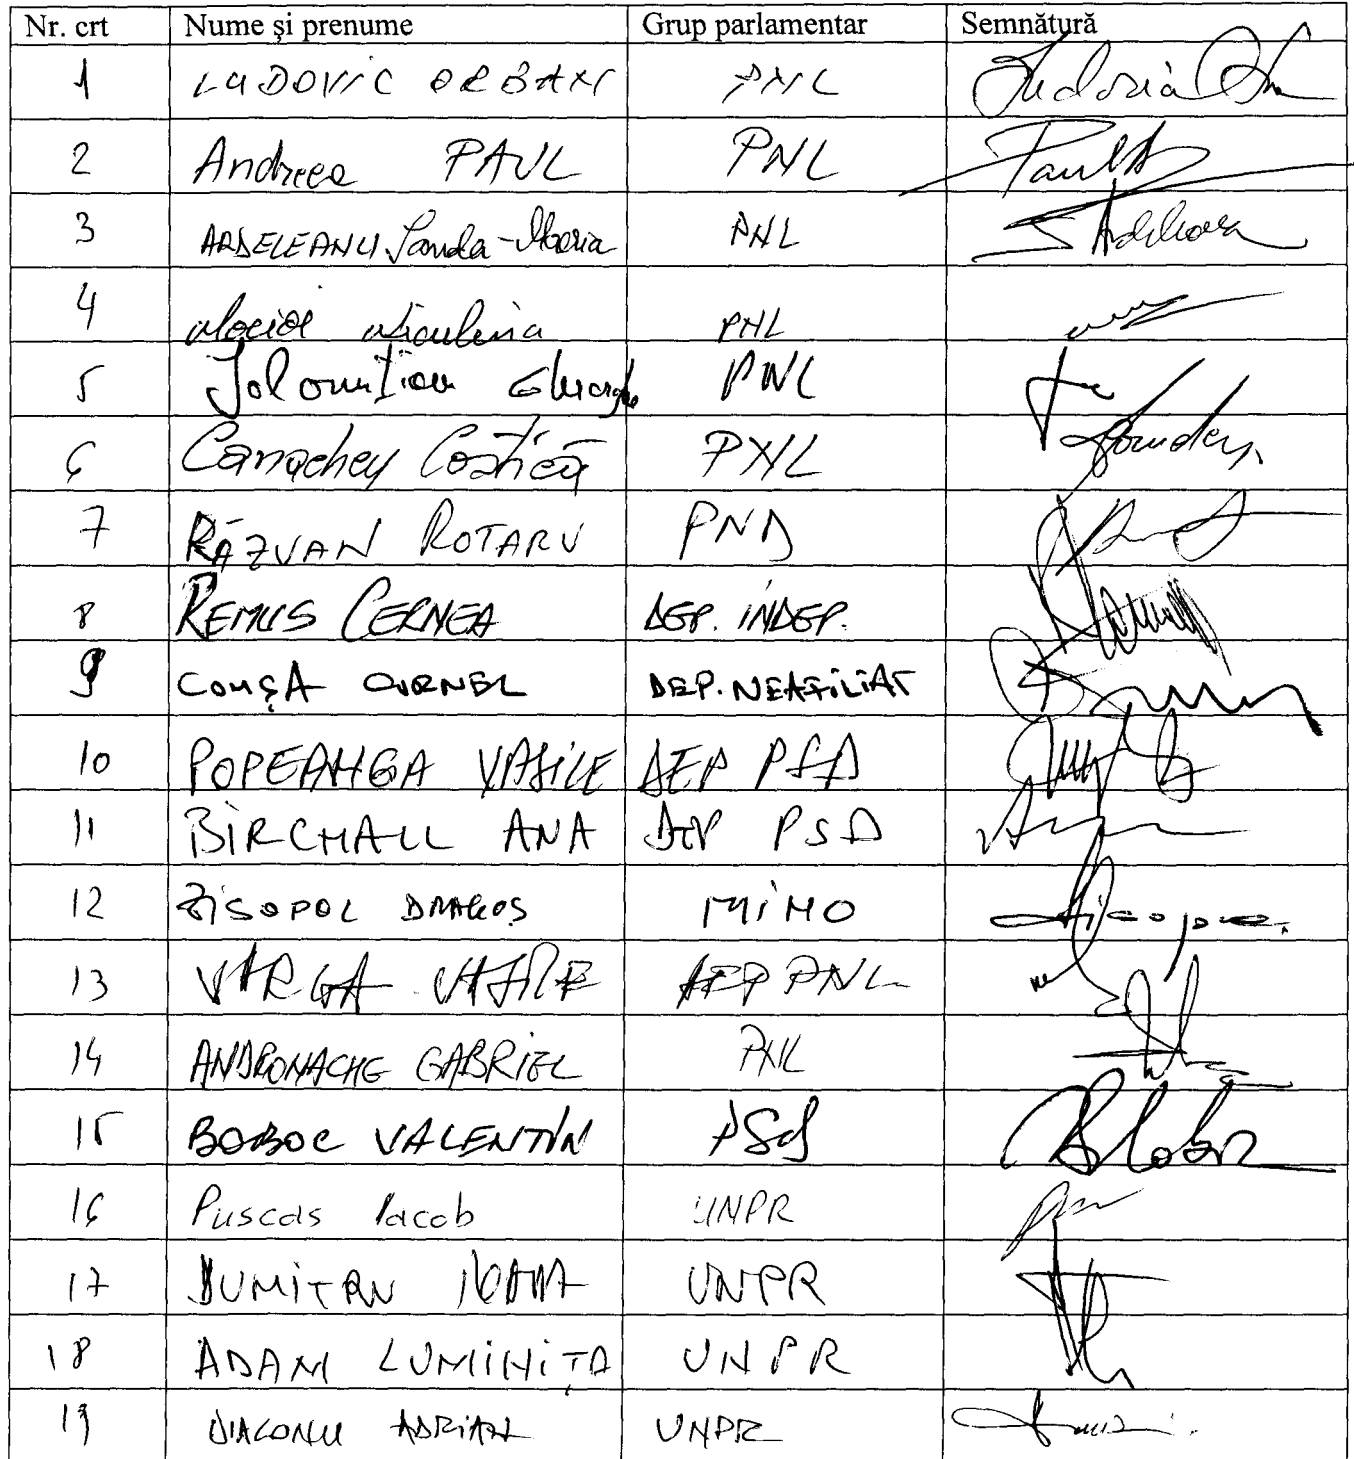 Nr. crt Nume şi prenume Grup parlamentar Semnătură
1 LUDOVIC ORBAN PNL
2 Andreea PAUL PNL
3 ARDELEANU Sanda-Maria PNL
4 PNL
5 Ialomițianu Gheorghe PNL
6 Canacheu Costică PNL
7 RĂZVAN ROTARU PND
8 REMUS CERNEA DEP. INDEP.
9 COMȘA CORNEL DEP. NEAFILIAT
10 POPEANGA VASILE DEP PSD
11 BIRCHALL ANA DEP PSD
12 ZISOPOL DRAGOȘ MINO
13 VARGA VASILE DEP PNL
14 ANDRONACHE GABRIEL PNL
15 BOBOC VALENTIN PSD
16 Puscas Iacob UNPR
17 DUMITRU IOANA UNPR
18 ADAM LUMINIȚA UNPR
19 DIACONU ADRIAN UNPR